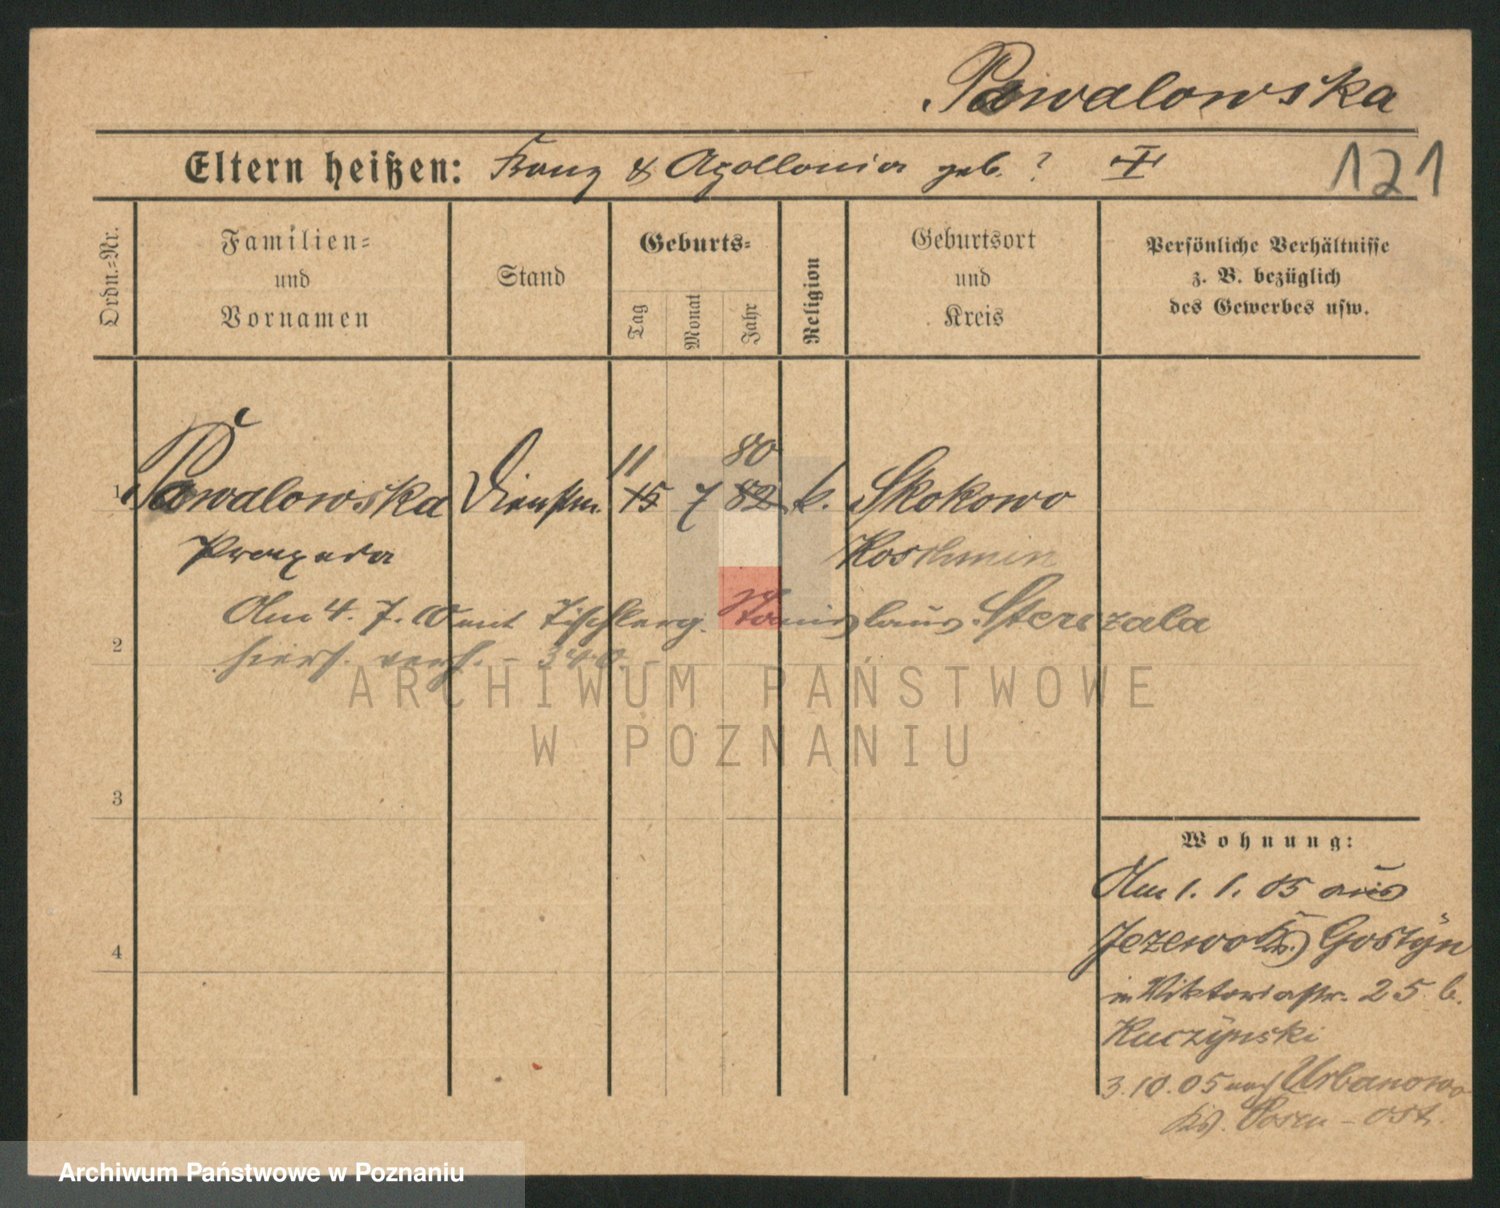 Pawalowska
Eltern heißen: Franz & Apollonia geb. ?
121
Ordn.-Nr.
Familien-
und
Vornamen
Stand
Geburts-
Tag
Monat
Jahr
Religion
Geburtsort
und
Kreis
Persönliche Verhältnisse
z. B. bezüglich
des Gewerbes usw.
11 80
1 Pawalowska Dienstm. 15 7 82 k. Skokowo
Praxeda Koschmin
Am 4. 7. mit Tischlerg. Stanislaus
2 hiers. verh. - 340.
ARCHIWUM PAŃSTWOWE
W POZNANIU
3
Wohnung:
Am 1. 1. 05 aus
Jezewo Ks. Gostÿn
4
in Viktoriastr. 25 b.
Kuczÿnski
3. 10. 05 nach Urbanowo
Ks. Posen - ost.
Archiwum Państwowe w Poznaniu